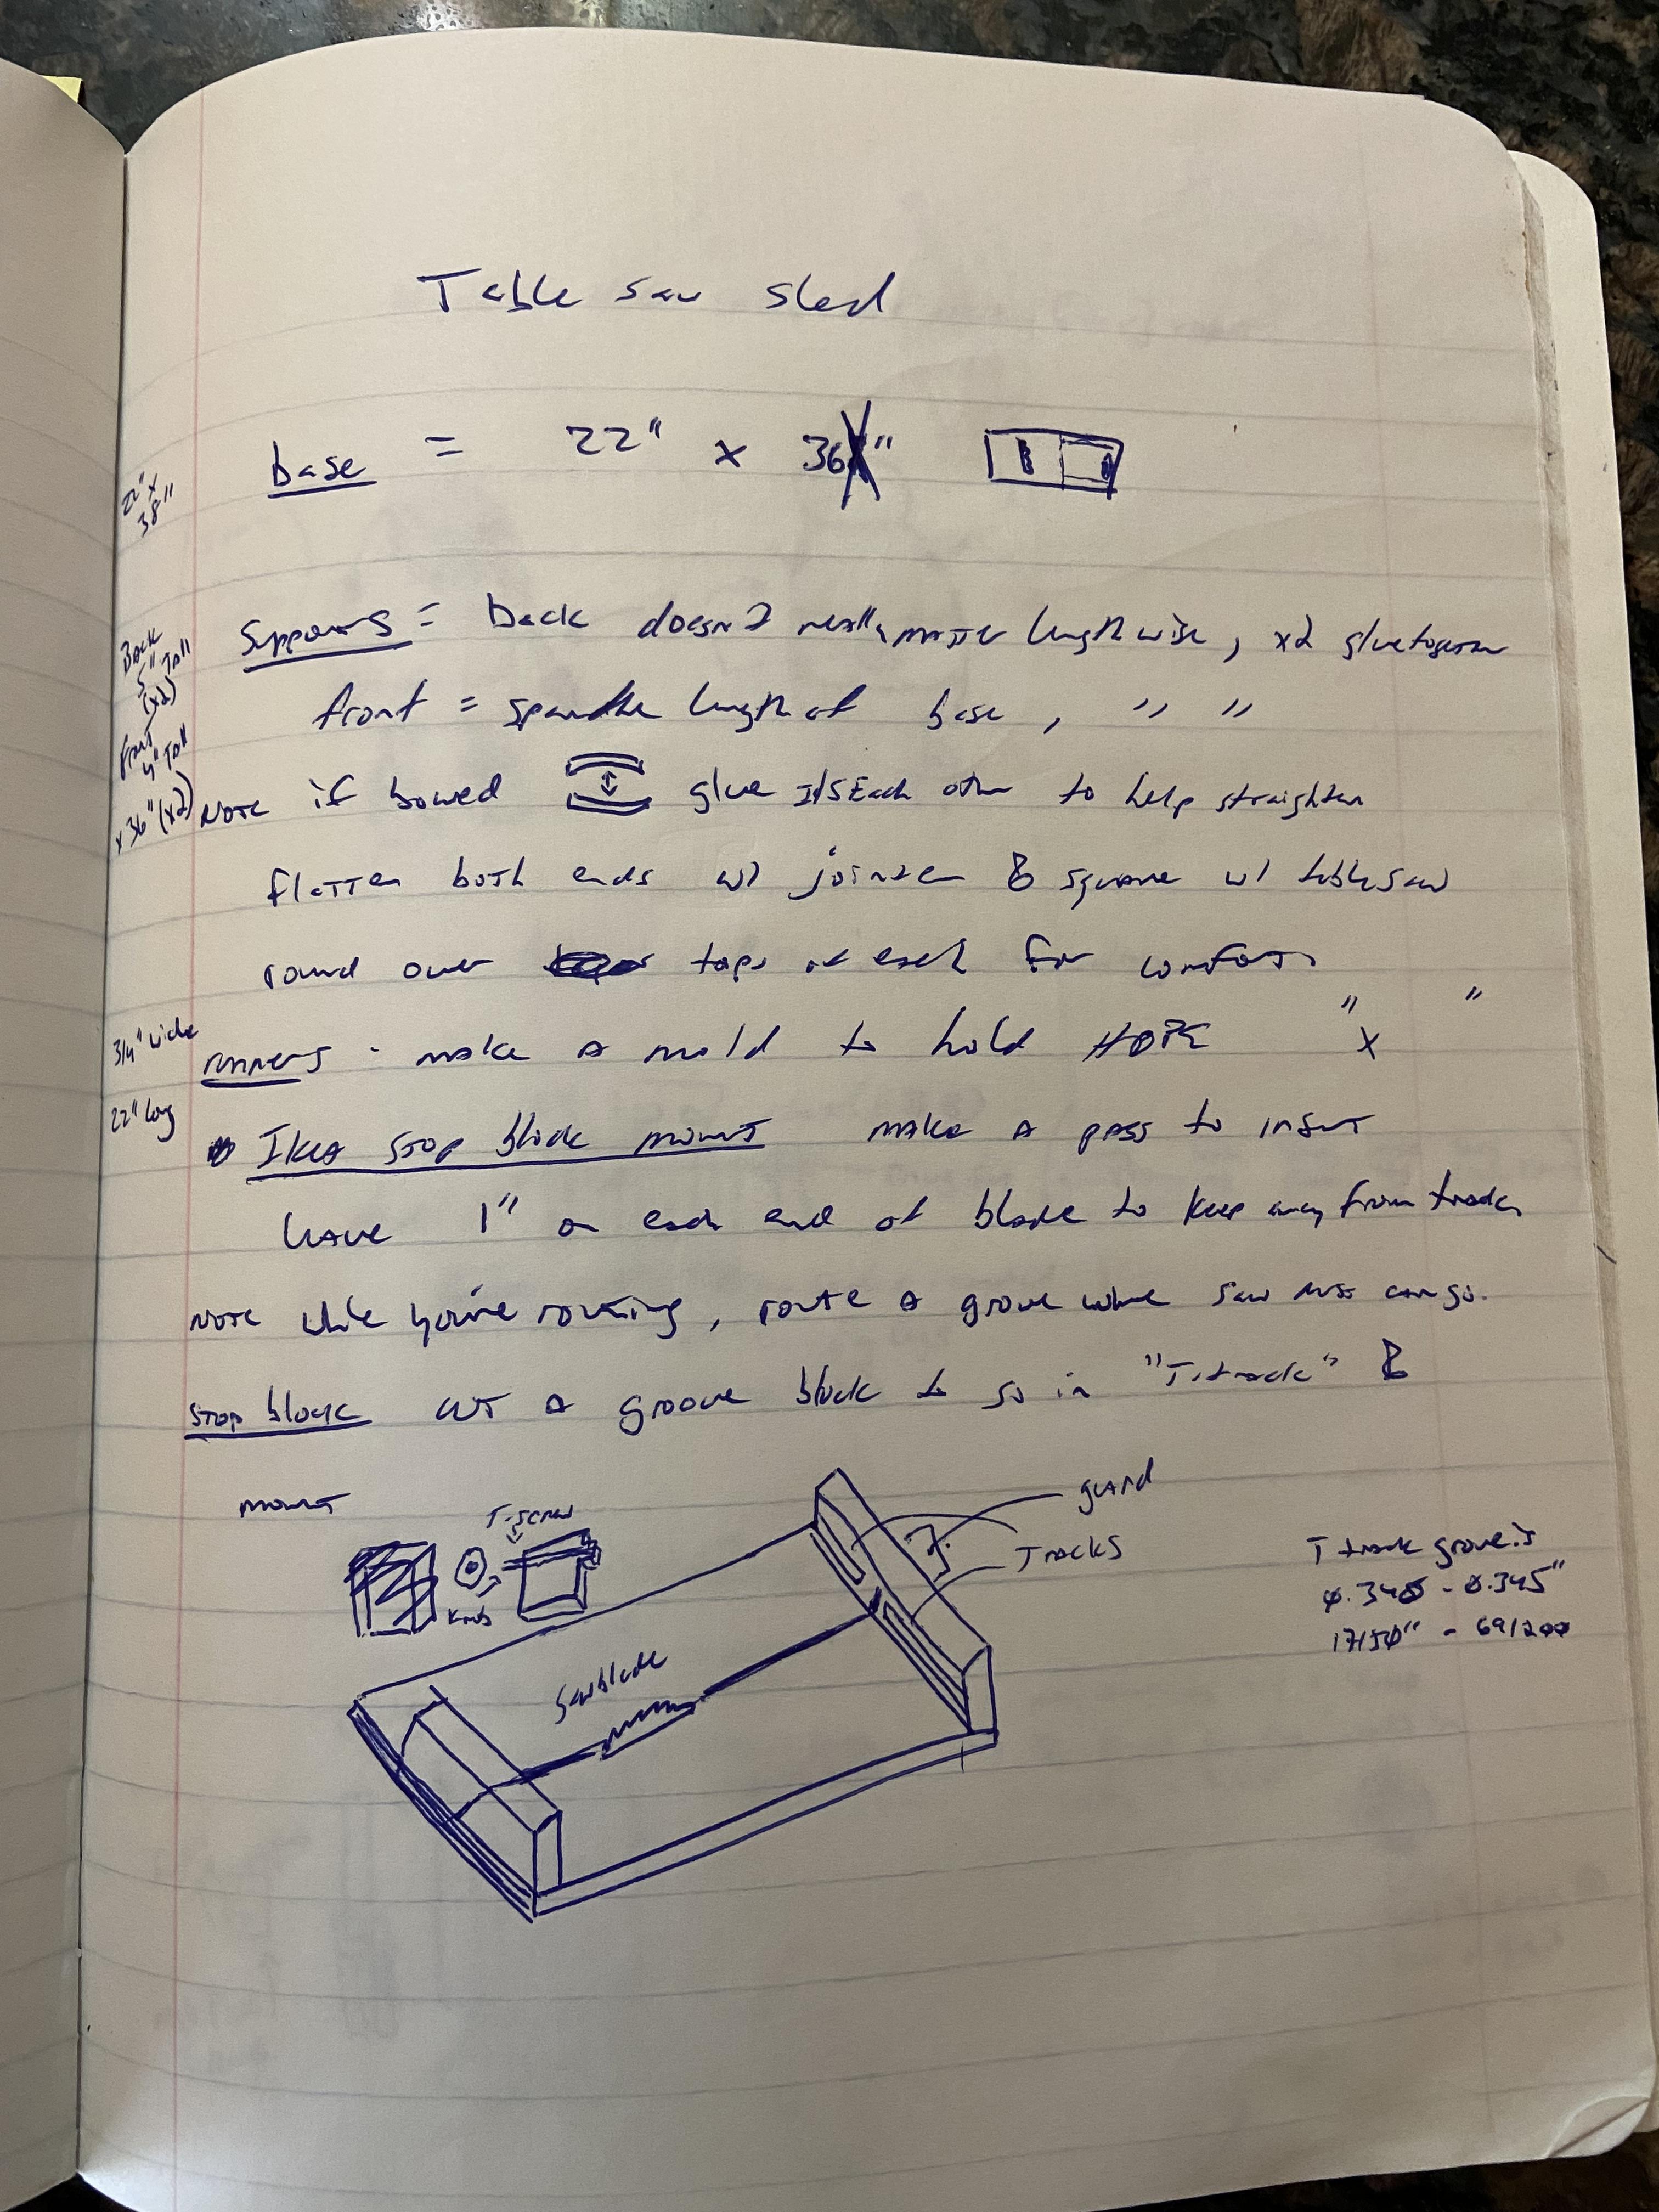 Table saw sled
base = 22" x 36"
22" x
38"
Supports = back doesn't really matter lengthwise, x2 glue together
Back
5" Tall
(x2)
front = span the length of base, " "
front
4" Tall
x 36" (x2)
Note if bowed glue Each other to help straighten
flatten both ends w/ jointer & square w/ tablesaw
round over tops of each for comfort
3/4" wide
22" long
runners - make a mold to hold HDPE " x "
Ikea stop block mount make a pass to insert
leave 1" on each end of blade to keep away from track
Note while you're routing, route a grove where saw dust can go.
Stop block cut a groove block to go in "T-track" &
mount
T-screw
knob
guard
Tracks
Sawblade
T track grove is
0.340 - 0.345"
17/50" - 69/200